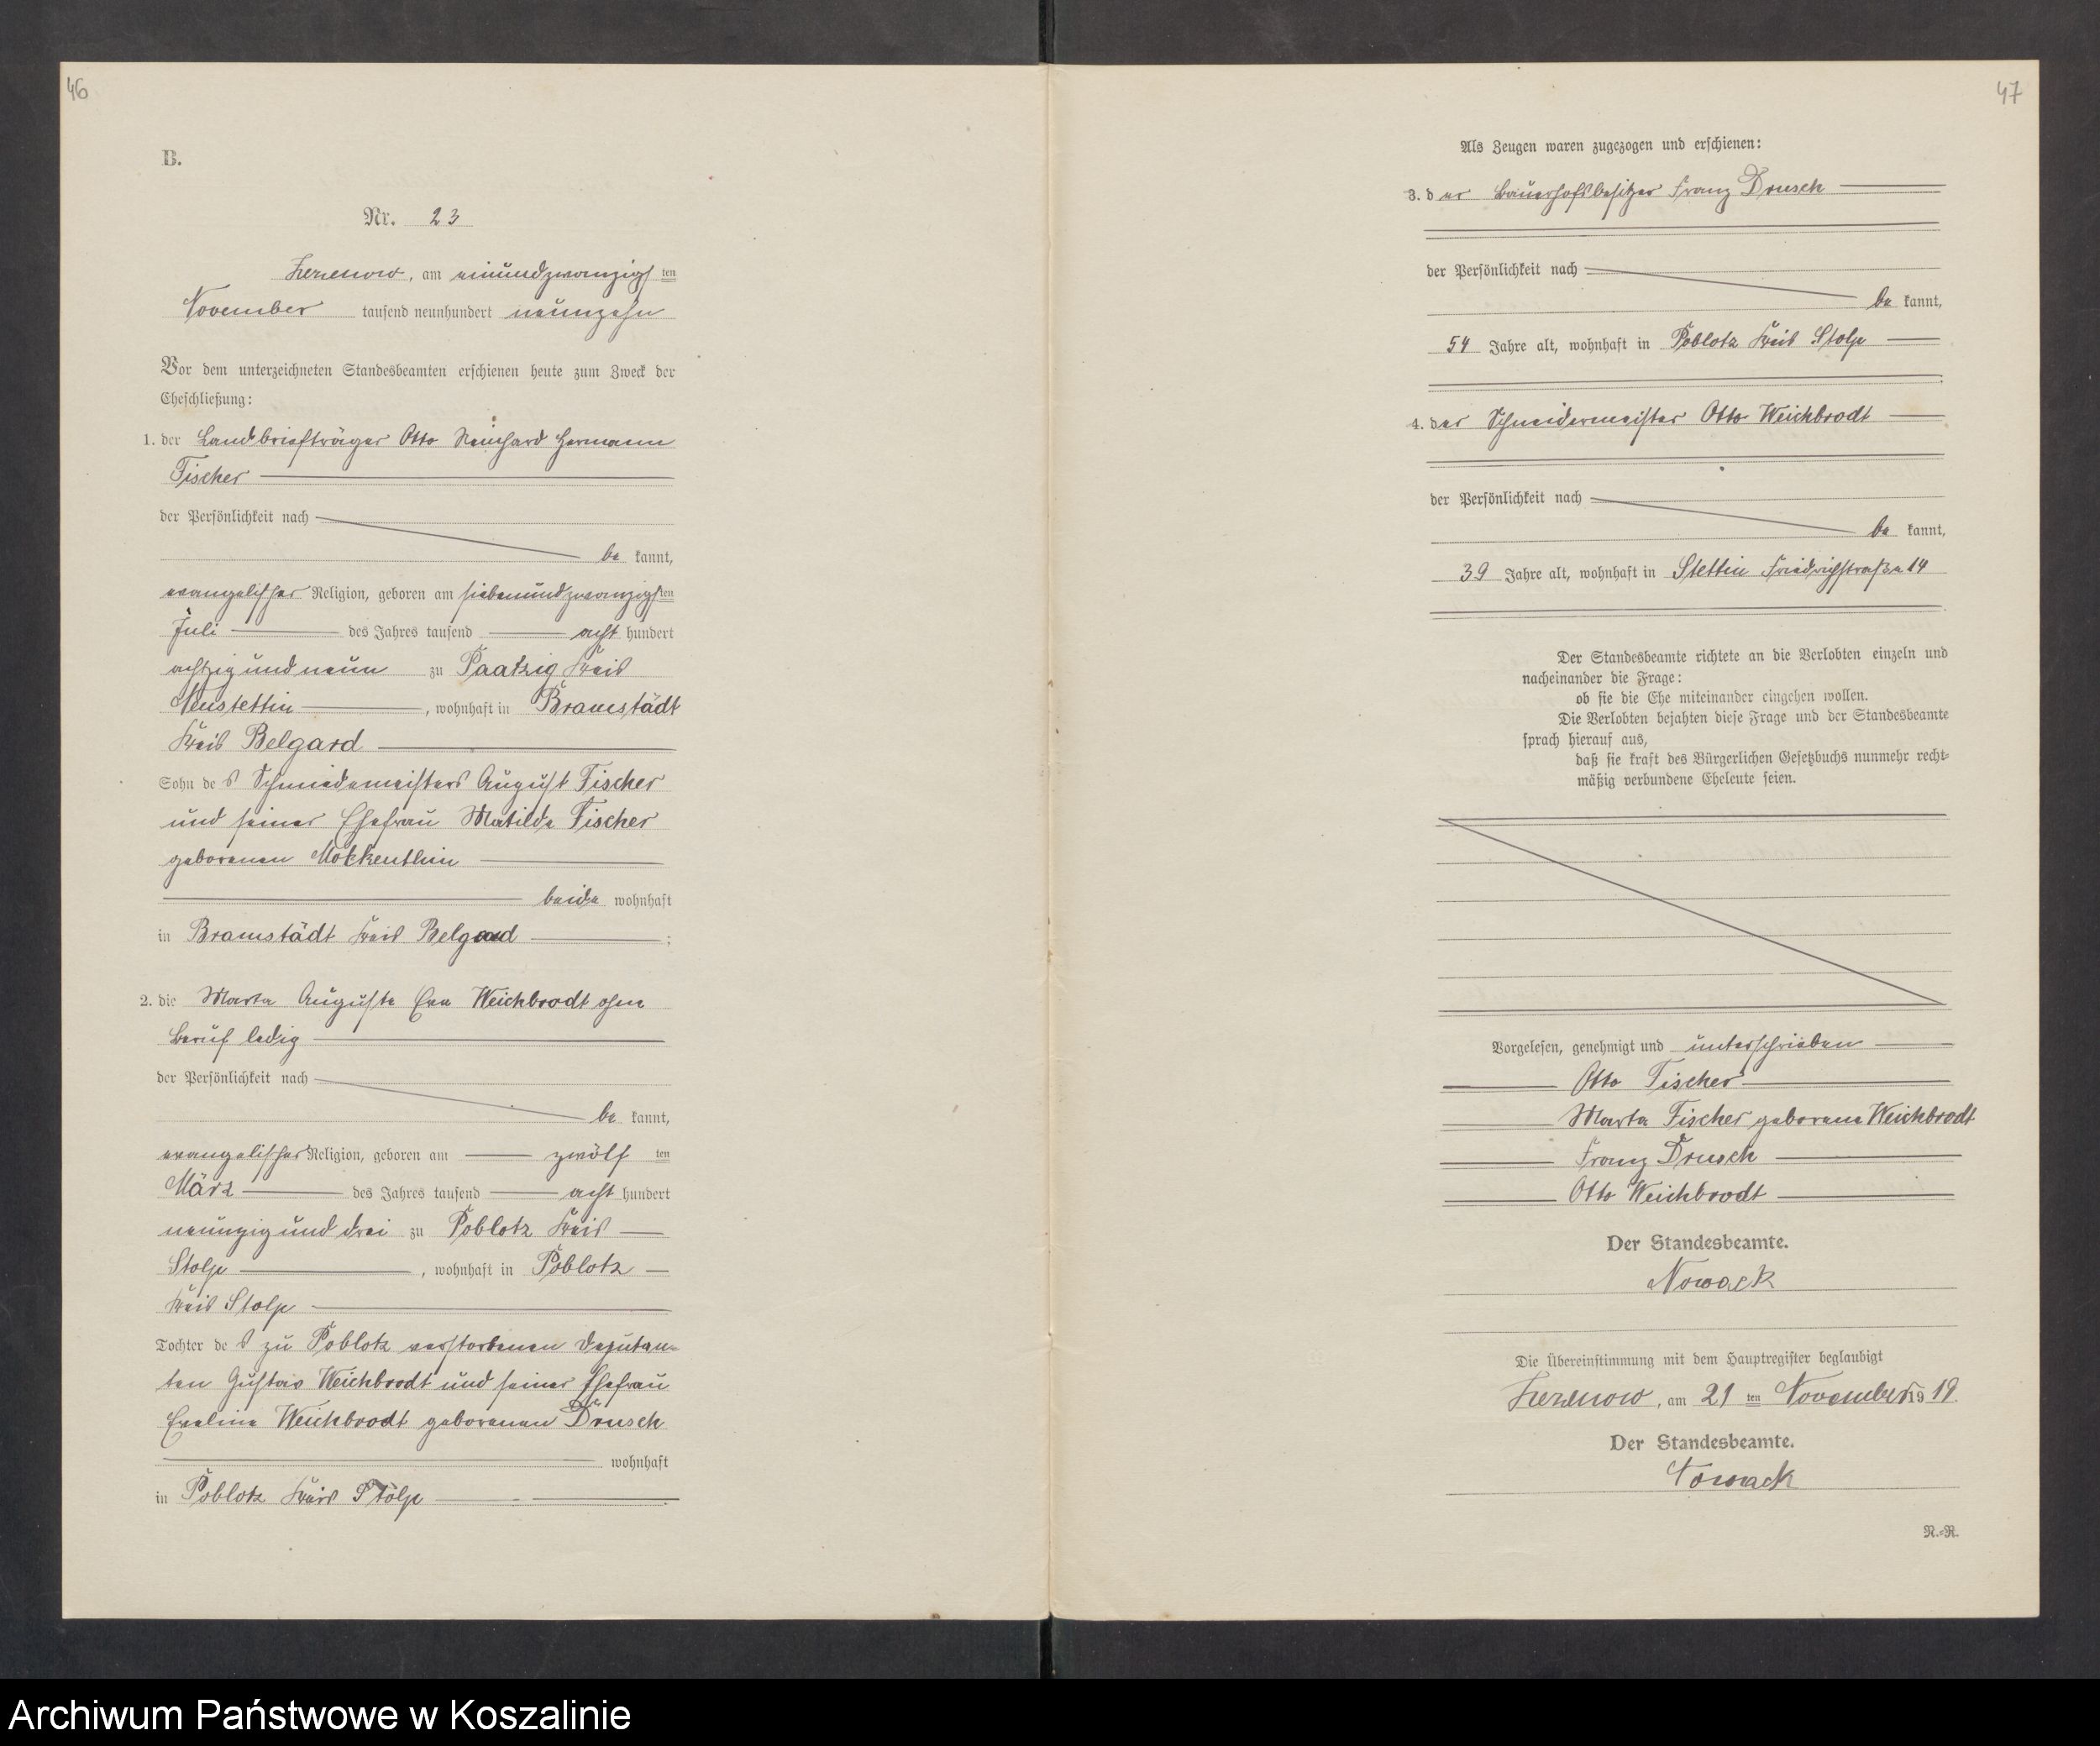 46
B.
Nr. 23
Zezenow, am einundzwanzigsten
November tausend neunhundert neunzehn
Vor dem unterzeichneten Standesbeamten erschienen heute zum Zweck der
Eheschließung:
1. der Landbriefträger Otto Reinhard Hermann
Fischer
der Persönlichkeit nach
be kannt,
evangelischer Religion, geboren am siebenundzwanzigsten
Juli des Jahres tausend acht hundert
achtzig und neun zu Paatzig Kreis
Neustettin, wohnhaft in Bramstädt
Kreis Belgard
Sohn des Schmiedemeisters August Fischer
und seiner Ehefrau Matilde Fischer
geborenen
beide wohnhaft
in Bramstädt Kreis Belgard ;
2. die Marta Auguste Eva Weichbrodt ohne
Beruf ledig
der Persönlichkeit nach
be kannt,
evangelischer Religion, geboren am zwölf ten
März des Jahres tausend acht hundert
neunzig und drei zu Poblotz Kreis
Stolp, wohnhaft in Poblotz
Kreis Stolp
Tochter des zu Poblotz verstorbenen Deputan-
ten Gustav Weichbrodt und seiner Ehefrau
Eveline Weichbrodt geborenen Drusch
wohnhaft
in Poblotz Kreis Stolp
47
Als Zeugen waren zugezogen und erschienen:
3. der Bauerhofsbesitzer Franz Drusch
der Persönlichkeit nach
be kannt,
54 Jahre alt, wohnhaft in Poblotz Kreis Stolp
4. der Schneidermeister Otto Weichbrodt
der Persönlichkeit nach
be kannt,
39 Jahre alt, wohnhaft in Stettin Friedrichstraße 14
Der Standesbeamte richtete an die Verlobten einzeln und
nacheinander die Frage:
ob sie die Ehe miteinander eingehen wollen.
Die Verlobten bejahten diese Frage und der Standesbeamte
sprach hierauf aus,
daß sie kraft des Bürgerlichen Gesetzbuchs nunmehr recht-
mäßig verbundene Eheleute seien.
Vorgelesen, genehmigt und unterschrieben
Otto Fischer
Marta Fischer geborene Weichbrodt
Franz Drusch
Otto Weichbrodt
Der Standesbeamte.
Nowack
Die Übereinstimmung mit dem Hauptregister beglaubigt
Zezenow, am 21 ten November 1919.
Der Standesbeamte.
Nowack
N.-R.
Archiwum Państwowe w Koszalinie